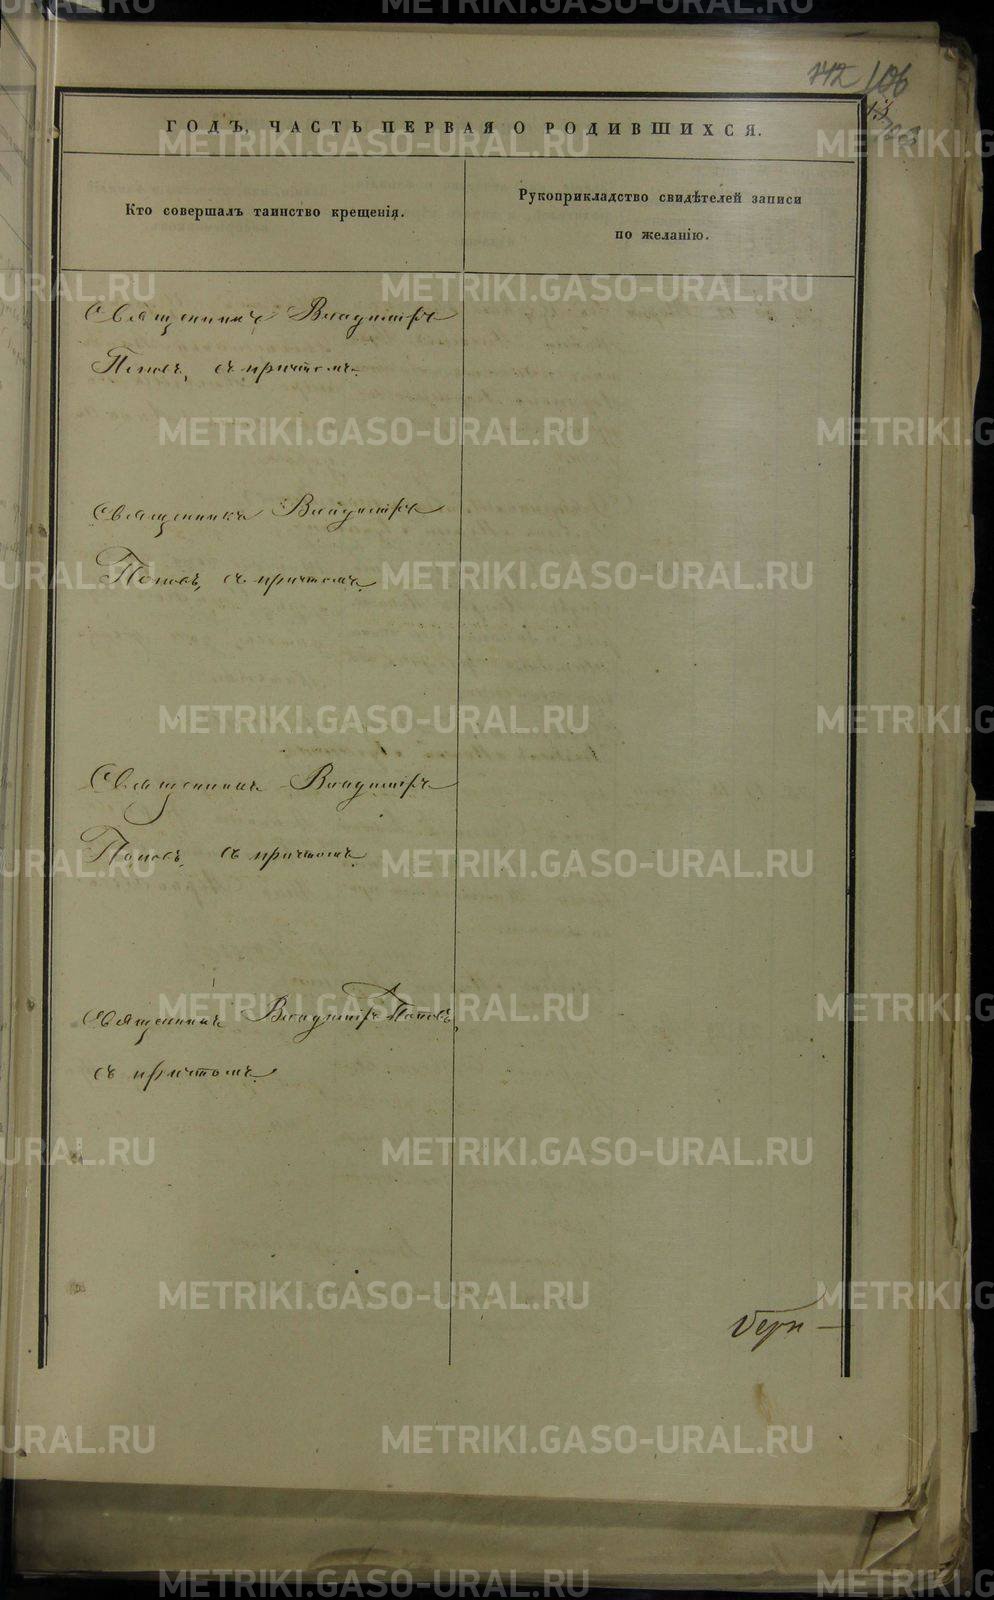 142 106
13
ГОДЪ, ЧАСТЬ ПЕРВАЯ О РОДИВШИХСЯ.
Кто совершалъ таинство крещенія.
Рукоприкладство свидѣтелей записи
по желанію.
Священникъ Владиміръ
Поповъ, съ причтомъ.
Священникъ Владиміръ
Поповъ, съ причтомъ.
Священникъ Владиміръ
Поповъ, съ причтомъ.
Священникъ Владиміръ Поповъ,
съ причтомъ.
METRIKI.GASO-URAL.RU